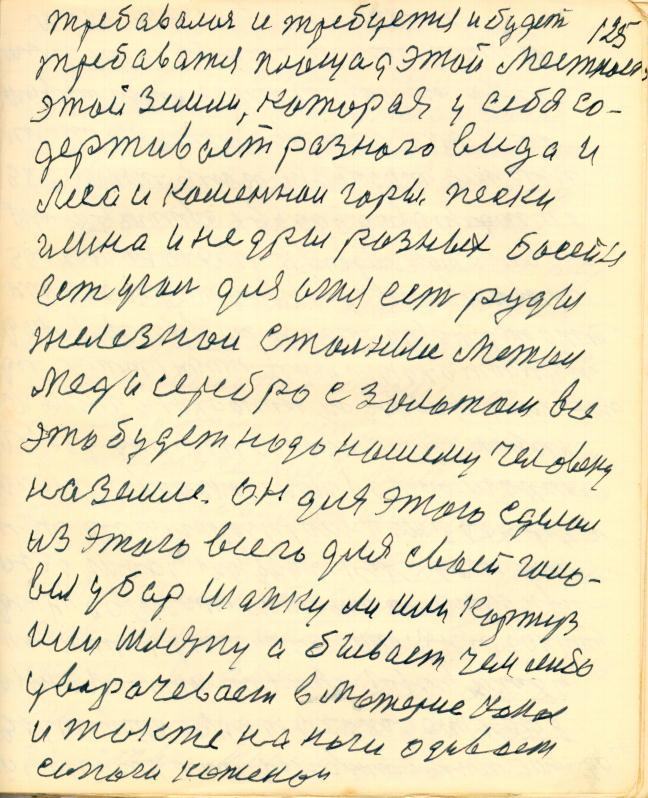 требавался и требуется и будет 125
требаватя площад этой местности
этой земли, которая у себя со-
держивает разного вида и
леса и каменнои горы пески
глина и недры разных басейн
сет угол для огня сет руды
железнои стольные метал
Меди серебро с золотом все
это будет надо нашему человеку
на земле. он для этого сделал
из этого всего для своей голо-
вы убор шапку ли или картуз
или шляпу а бывает чем либо
уворачевает в материе
и также на ноги одивает
сапоги коженои